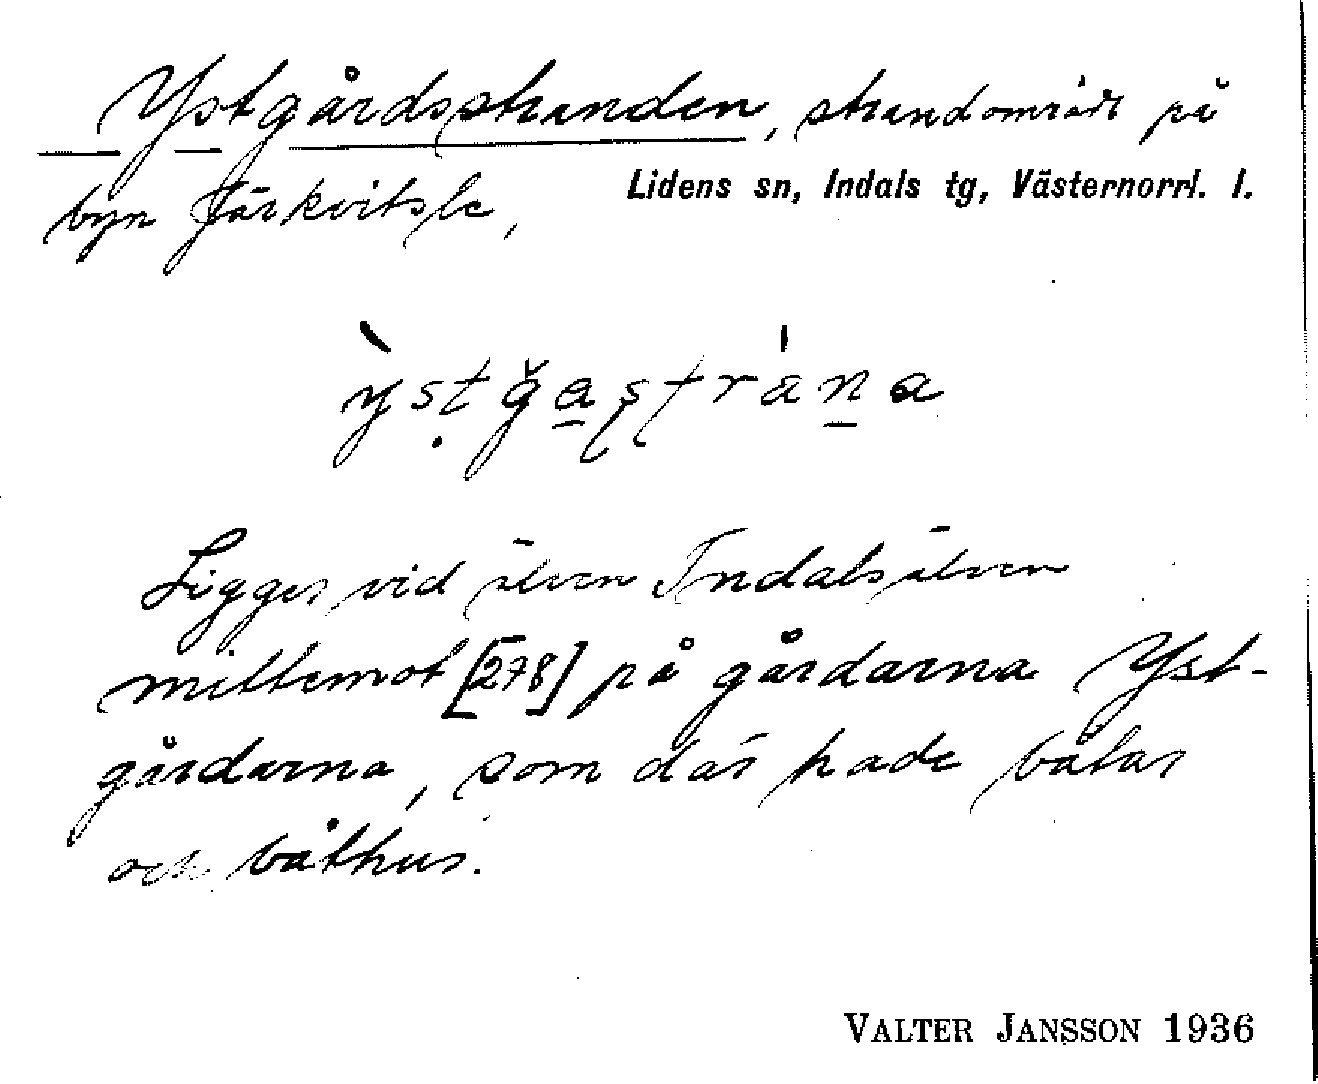 Ystgårdsstranden, strandområde på
byn Järkvitsle,
Lidens sn, Indals tg, Västernorrl. l.
Ligger vid älven Indalsälven
mittemot [278] på gårdarna Yst-
gårdarna, som där hade båtar
och båthus.
VALTER JANSSON 1936